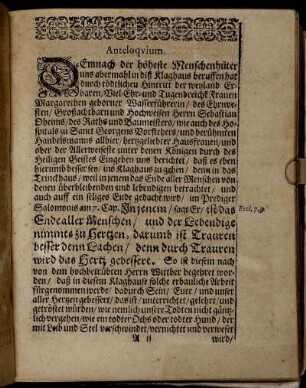 Anteloqvium.
DEmnach der höheste Menschenhüter
uns abermahl in diß Klaghaus beruffen hat
durch tödtlichen Hintrit der weyland Er-
baren/ Viel-Ehr- und Tugendreichē Frauen
Margarethen geborner Wasserführerin/ des Ehrnve-
sten/ Großachtbarn und Hochweisen Herrn Sebastian
Oheims/ des Raths und Baumeisters/ wie auch des Ho-
spitals zu Sanct Georgens Vorstehers/ und berühmten
Handelsmans allhier/ hertzgeliebter Hausfrauen/ und
ober der Allerweiseste unter denen Königen durch des
Heiligen Geistes Eingeben uns berichtet/ daß es eben
hierumb besser sey/ ins Klaghaus zu gehen/ denn in das
Trinckhaus/ weil in jenem das Ende aller Menschen von
denen überbleibenden und lebendigen betrachtet/ und
auch auff ein seliges Ende gedacht wird/ im Prediger
Salomonis am 7. Cap. In jenem/ sagt Er/ ist das
Ende aller Menschen/ und der Lebendige
nimmts zu Hertzen, darumb ist Trauren
besser denn Lachen/ denn durch Trauren
wird das Hertz gebessert. So ist diesem nach
von dem hochbetrübten Herrn Witber begehret wor-
den/ daß in diesem Klaghause solche erbauliche Arbeit
fürgenommen werde/ dadurch Sein/ Euer/ und unser
aller Hertzen gebessert/ das ist/ unterrichtet/ gelehrt/ und
getröstet würden/ wie nemlich unsere Todten nicht gäntz-
lich vergehen/ wie ein todter Ochs oder todter Hund/ der
mit Leib und Seel verschwindet/ vernichtet und verweset
A ij wird/